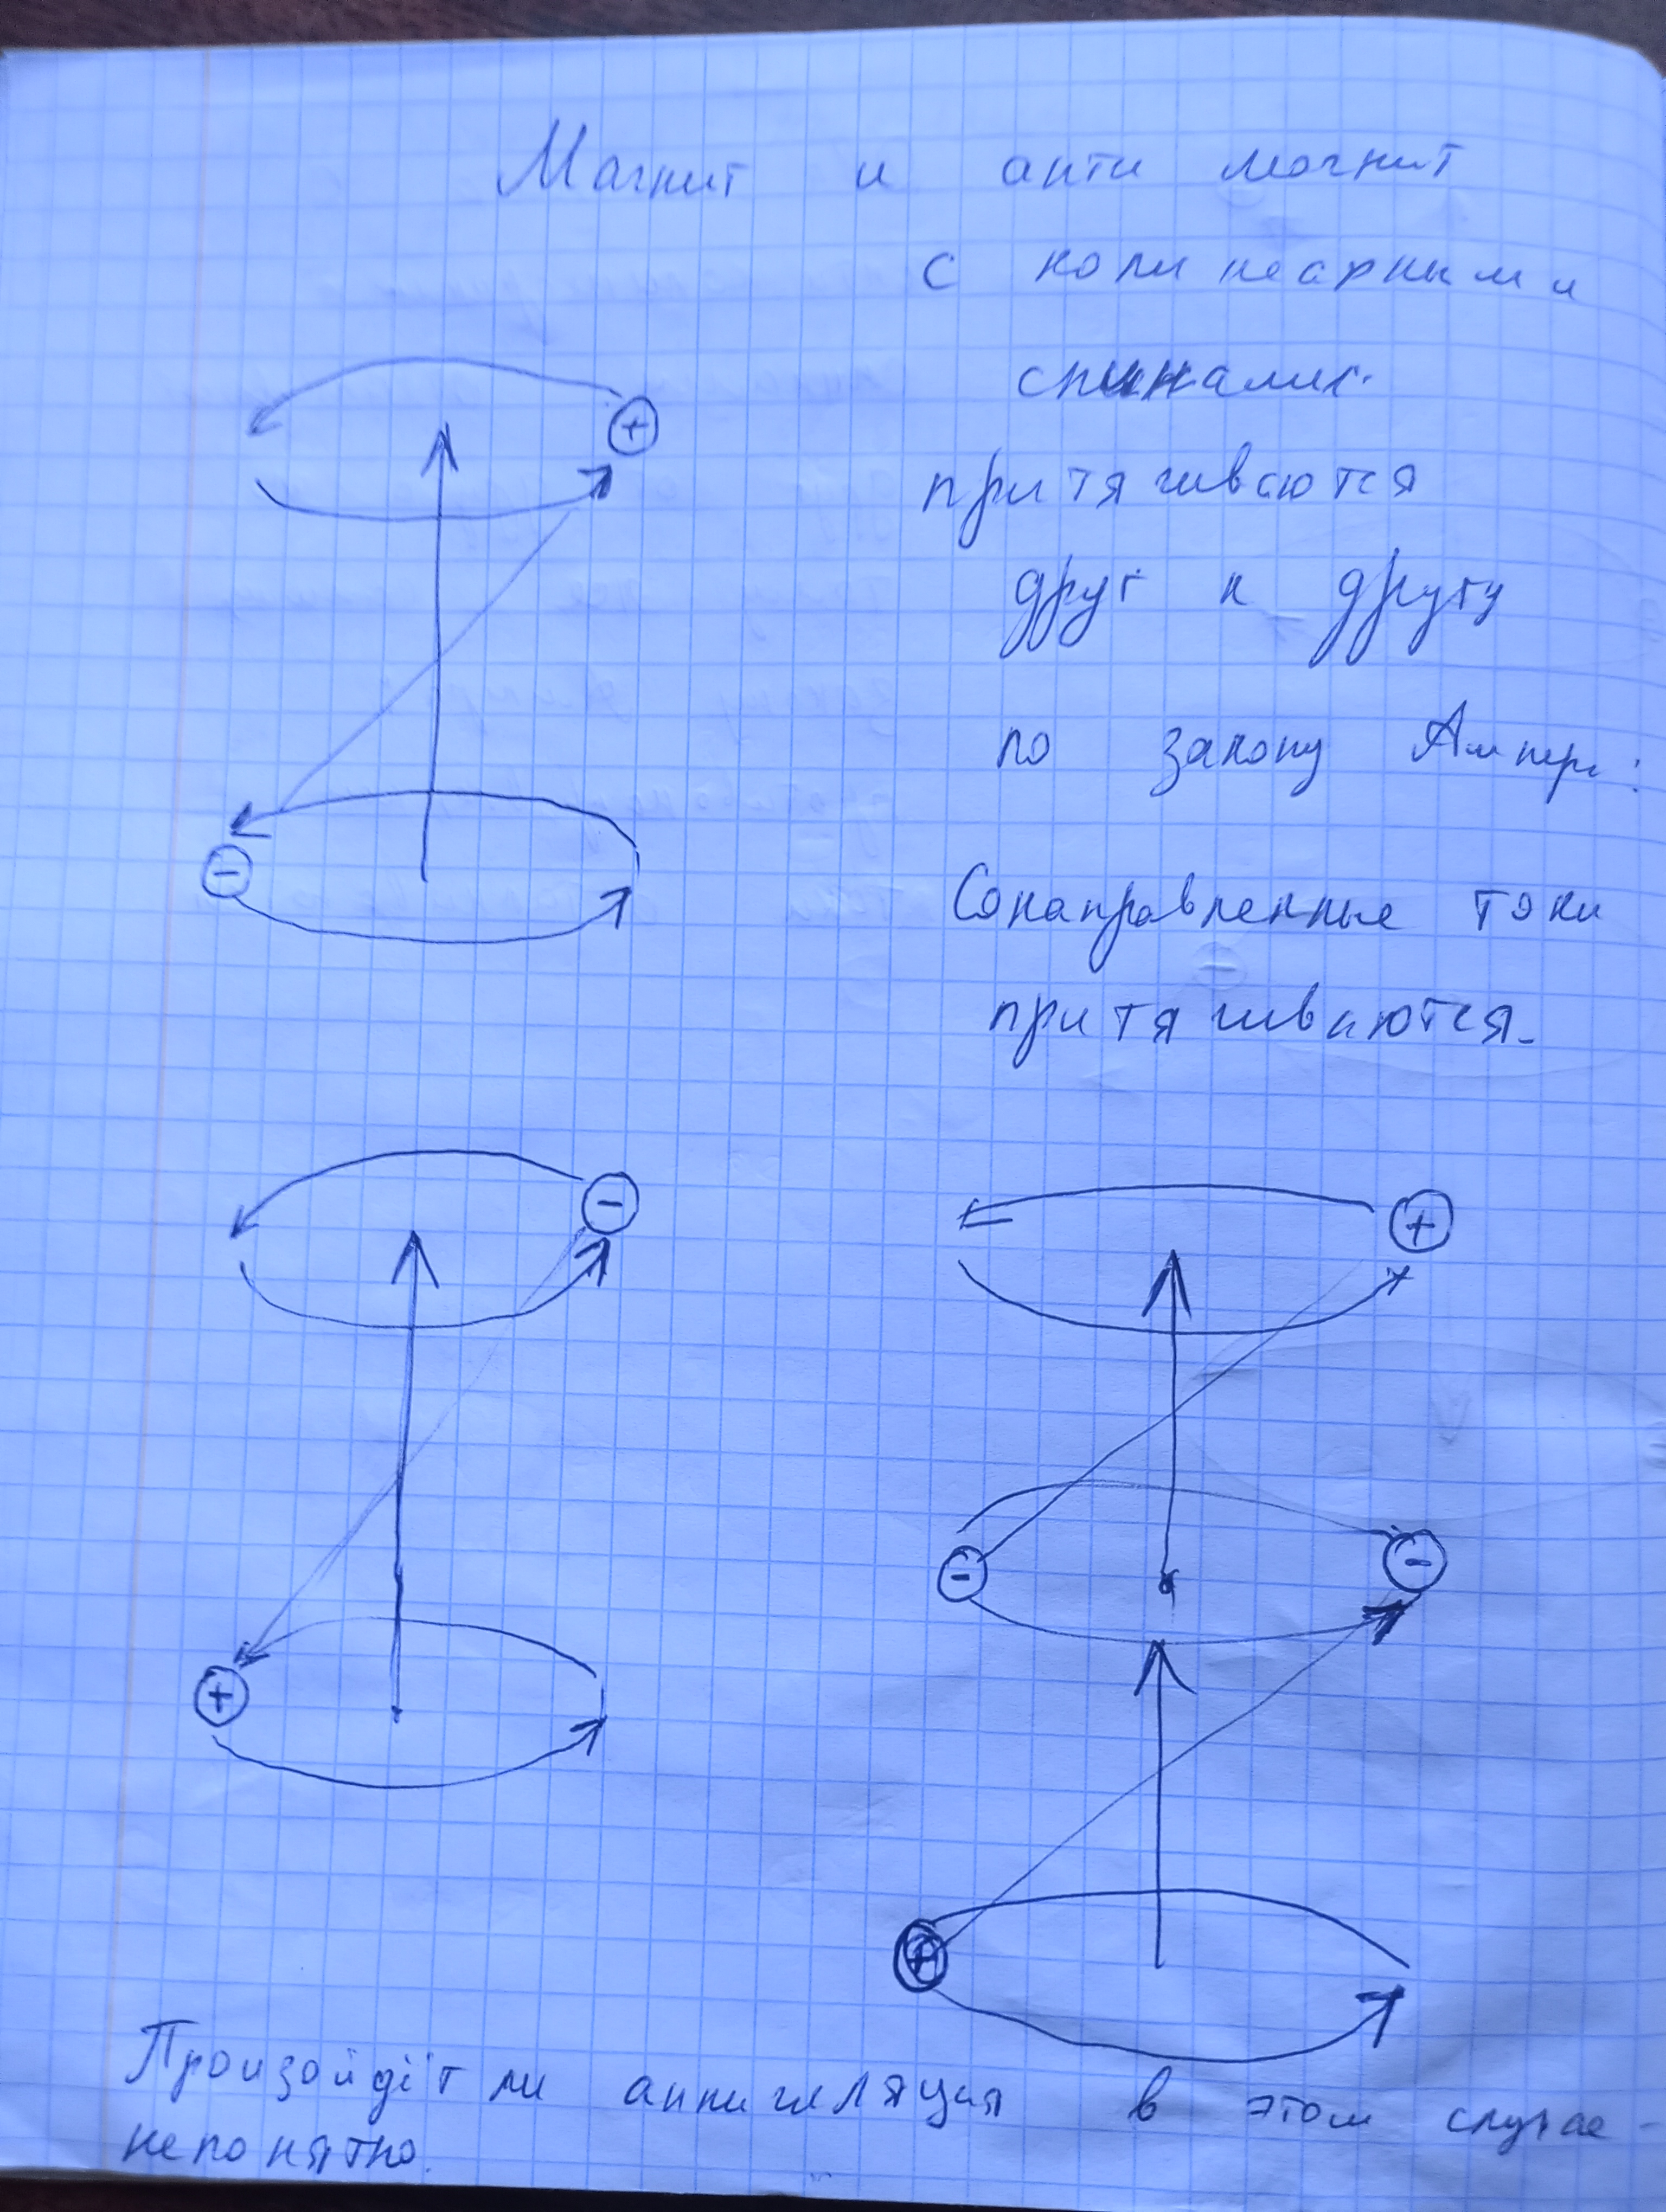 Магнит и анти магнит
с колинеарными
спинами
притягиваются
друг к другу
по закону Ампера:
+
-
Сонаправленные токи
притягиваются.
-
+
+
-
-
+
Произойдёт ли аннигиляция в этом случае -
непонятно.